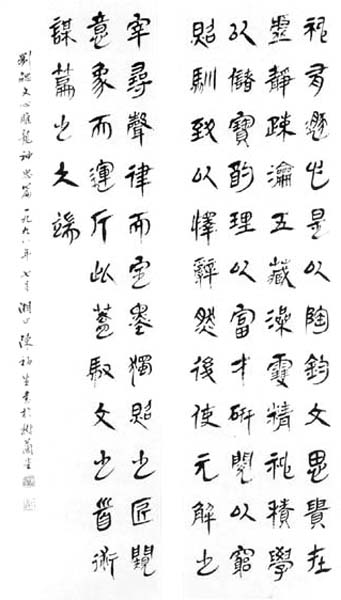 神有遯心是以陶鈞文思貴在
虛靜疏瀹五藏澡雪精神積學
以儲寶酌理以富才研閱以窮
照馴致以懌辭然後使元解之
宰尋聲律而定墨獨照之匠闚
意象而運斤此蓋馭文之首術
謀篇之大端
劉勰文心雕龍神思篇一九九八年七月陳初生書於